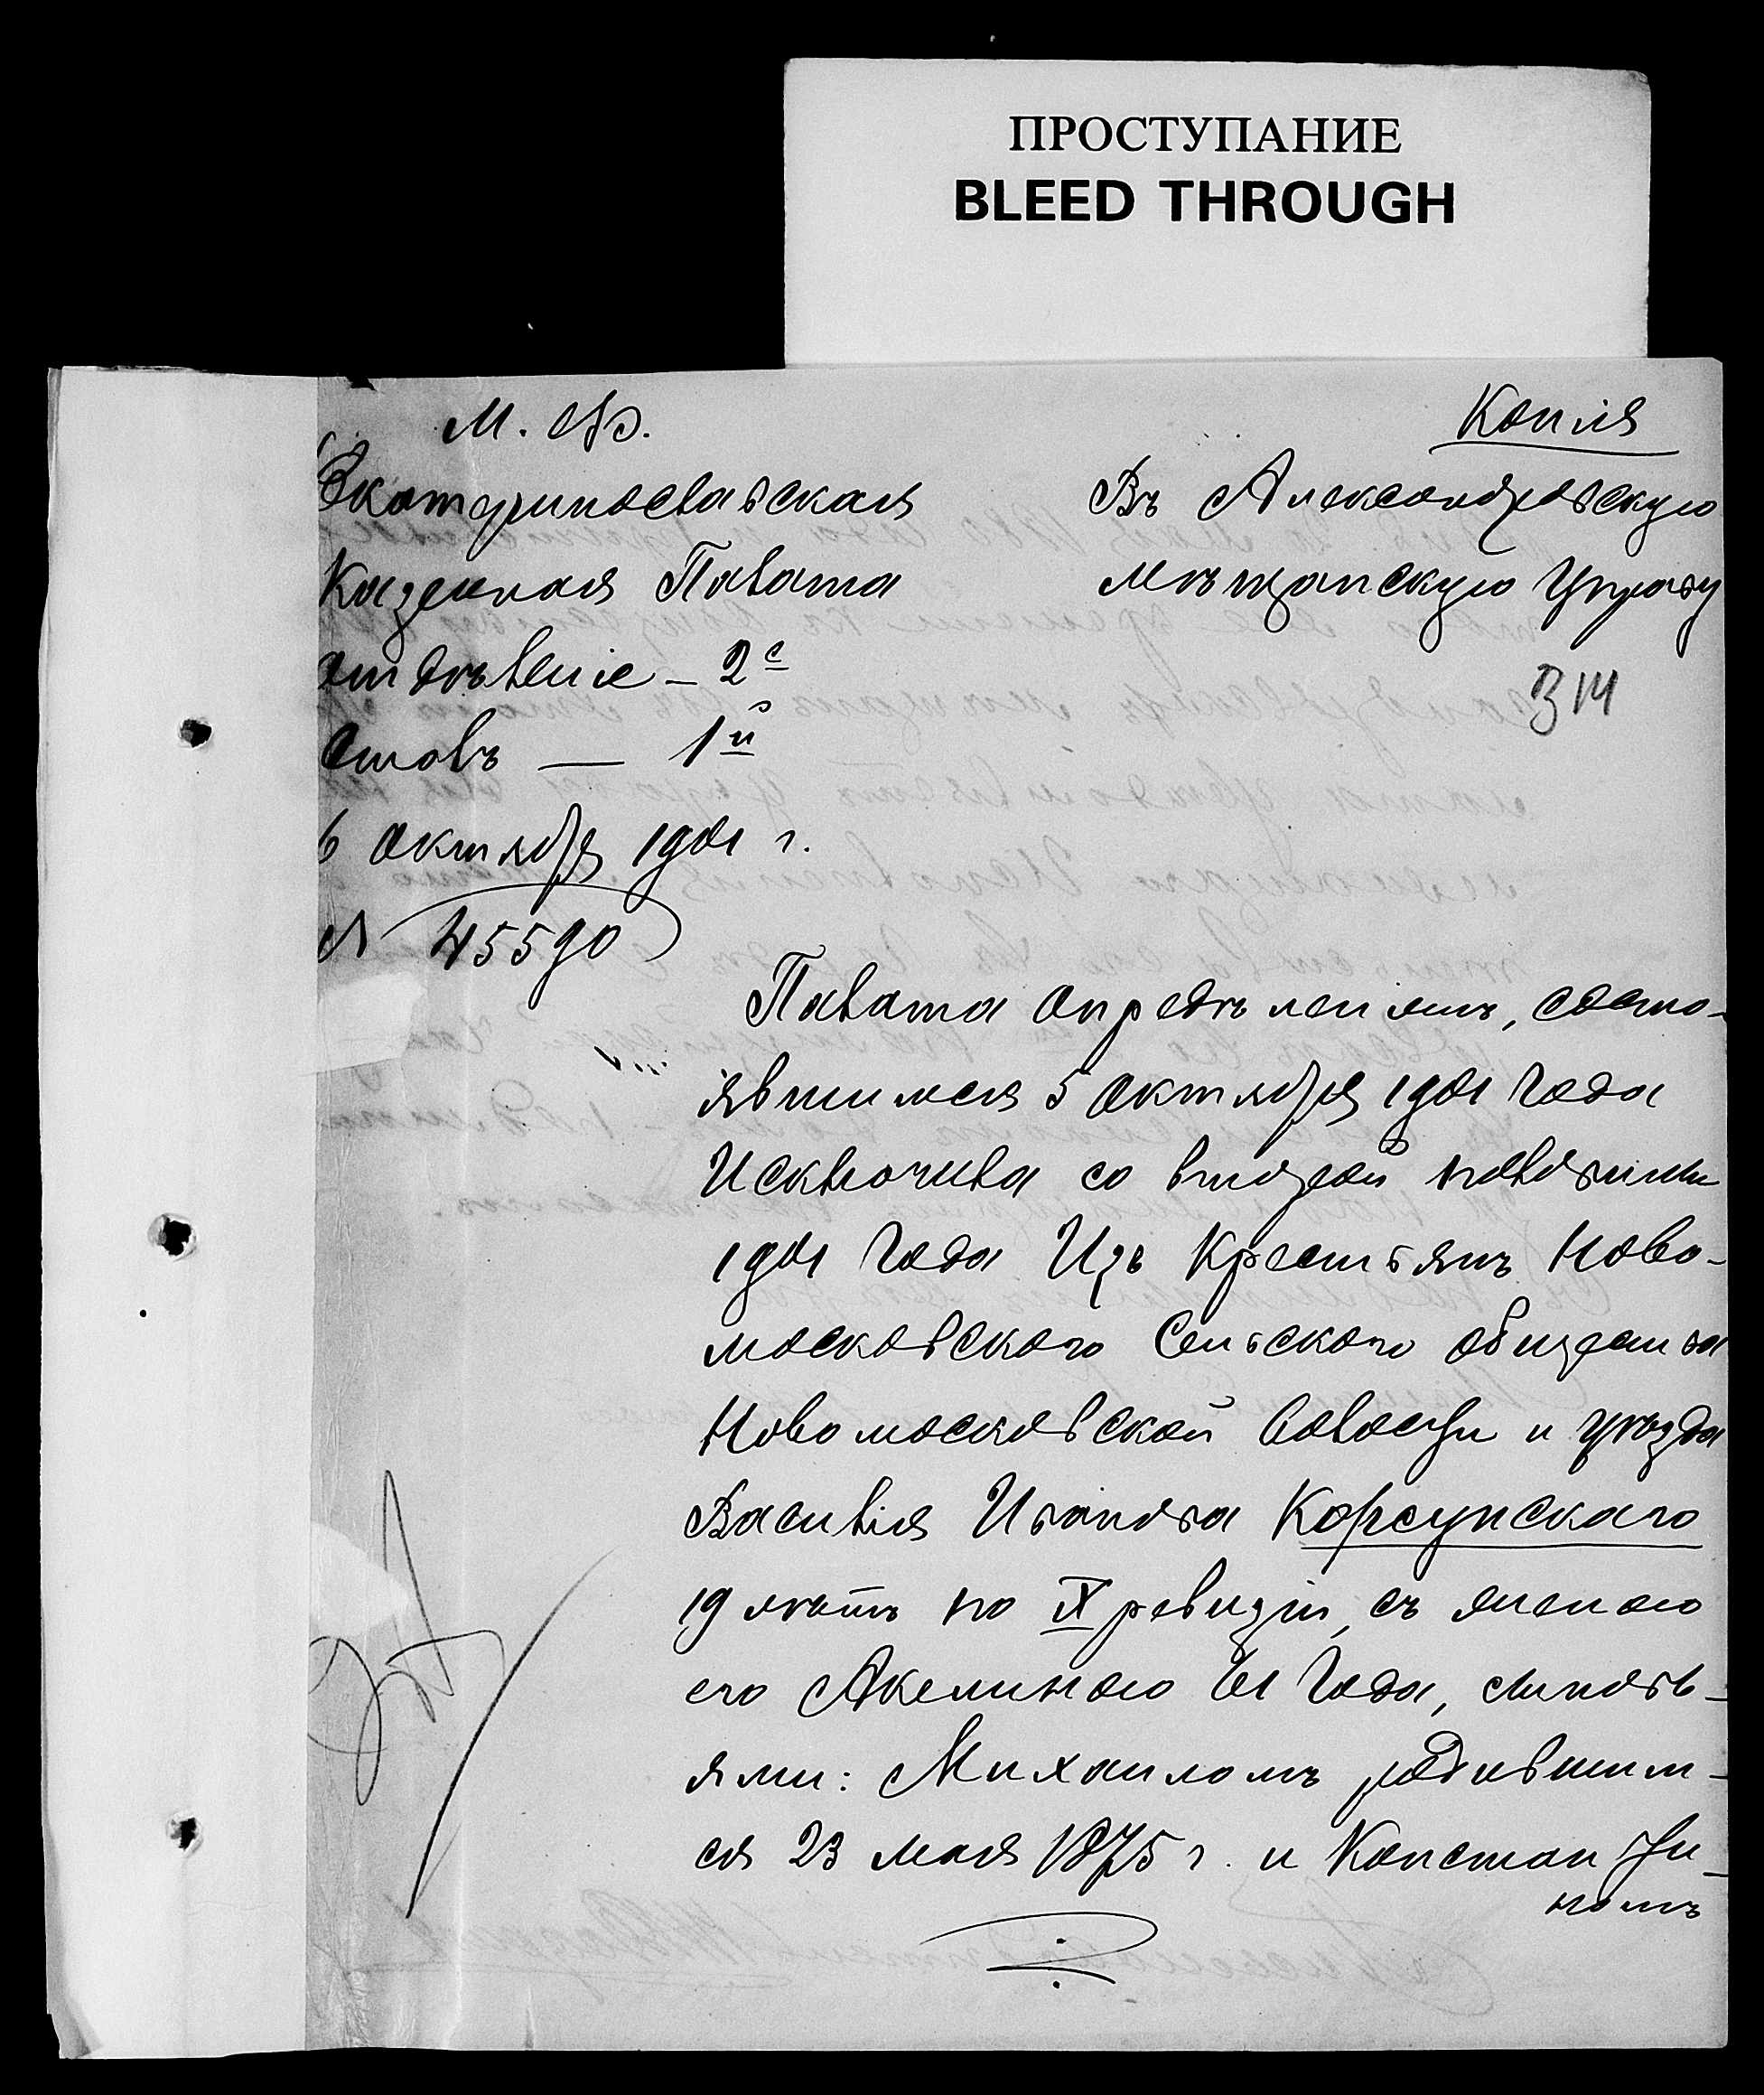 ПРОСТУПАНИЕ
BLEED THROUGH
М. Ф.
Копія
Екатеринославская
Казенная Палата
отдѣленіе – 2е
столъ — 1й
6 октября 1901 г.
№ 45590
Въ Александровскую
Мѣщанскую Управу
314
Палата опредѣленіемъ, состо-
явшимся 5 октября 1901 года
исключила со второй половины
1901 года изъ крестьянъ Ново-
московского сельского общества
Новомосковской волости и уѣзда
Василія Иванова Корсунскаго
19 лѣтъ по IX ревизіи, съ женою
его Акелиною 61 года, сыновь-
ями: Михаиломъ родившим-
ся 23 мая 1875 г. и Константи-
номъ